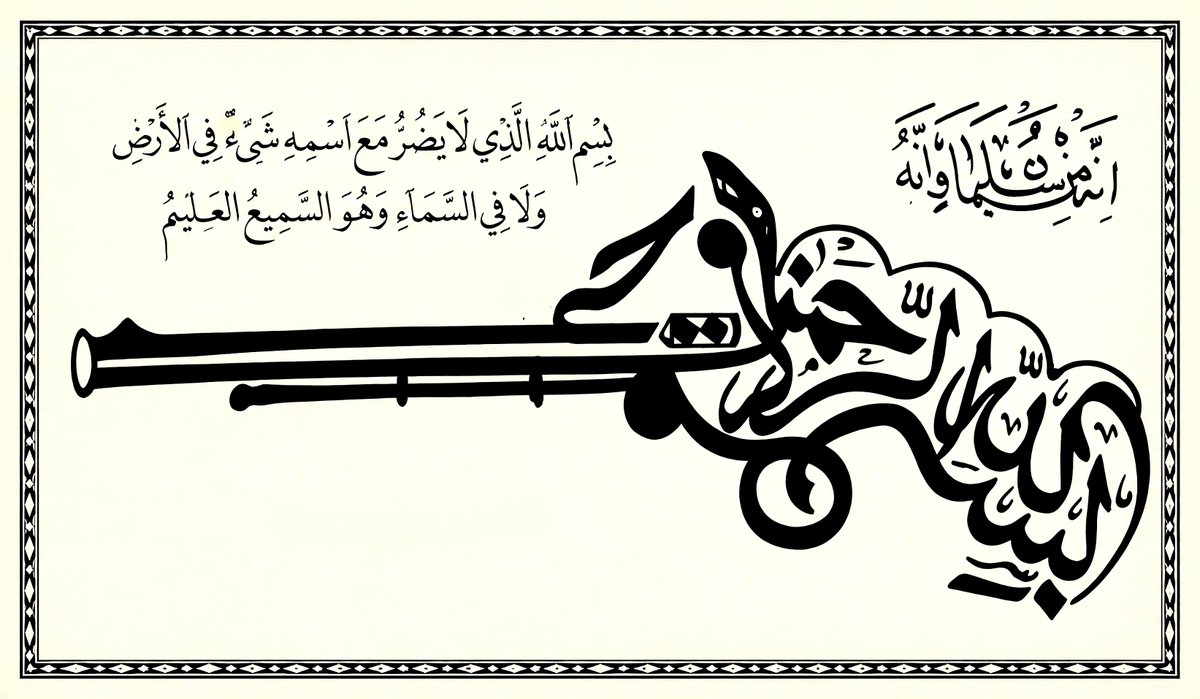 إنه من سليمان وإنه
بِسْمِ اللَّهِ الَّذِي لَا يَضُرُّ مَعَ اسْمِهِ شَيْءٌ فِي الْأَرْضِ
وَلَا فِي السَّمَاءِ وَهُوَ السَّمِيعُ الْعَلِيمُ
بسم الله الرحمن الرحيم